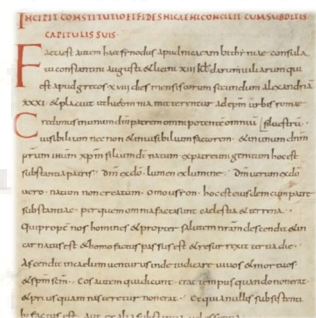 INCIPIT CONSTITUTIO ET FIDES NICAENI CONCILII CUM SUBDITIS
CAPITULIS SUIS
Facta est autem haec synodus apud nicaeam bithyniae consula
tu constantini augusti & licini XIII kł darum iuliarum qui
est apud grecos XVIIII dies mensis eorum secundum alexandriã
XXXI & placuit ut haec omia mitterentur ad epm urbis romae
Credimus in unum dm patrem omnipotentem omiũ silvestrũ
visibilium nec non & invisibilium factorem · & in unum dnm
nrum ihum xpm filium di natum ex patre unigenitum hoc est
substantia patris · Dm ex do · lumen ex lumine · Dm verum ex do
vero · natum non creatum · omousion · hoc est eiusdem cum patre
substantiae · per quem omnia facta sunt caelestia & terrena ·
Qui propter nos homines & propter salutem nram descendit & in
carnatus est & homo factus passus est & resurrexit tertia die ·
Ascendit in caelum venturus inde iudicare vivos & mortuos
& spm scm · Eos autem qui dicunt · erat tempus quando non erat
& priusquam nasceretur non erat · & quia nullis subsistenti
bus factus est aut ex alia substantia